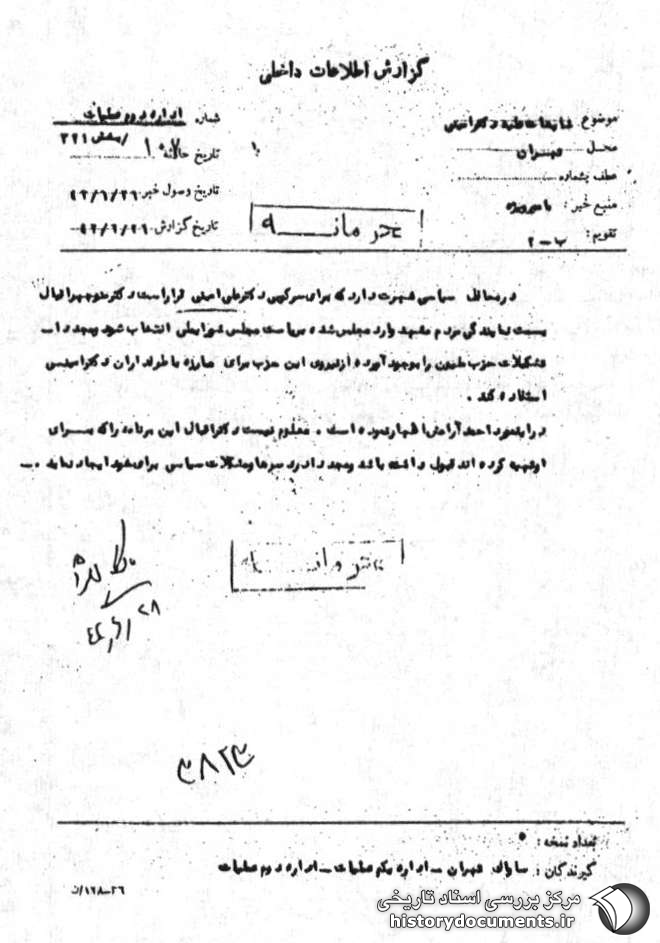 گزارش اطلاعات داخلی
موضوع: شایعات علیه دکتر امینی
شماره: اداره دوم عملیات
محل: تهران
/بخش ۳۲۱
عطف بشماره:
تاریخ حادثه:
منبع خبر:
تاریخ وصول خبر: ۴۲/۶/۲۶
تقویم: ب-۲
تاریخ گزارش: ۴۲/۶/۲۶
محرمانه
در محافل سیاسی شهرت دارد که برای سرکوبی دکتر علی امینی قرار است دکتر منوچهر اقبال
بسمت نمایندگی مردم مشهد وارد مجلس شده بریاست مجلس شورایملی انتخاب شود و مجددا
تشکیلات حزب ملیون را بوجود آورده از نیروی این حزب برای مبارزه با طرفداران دکتر امینی
استفاده کند .
در اینمورد احمد آرامش اظهار نموده است . معلوم نیست دکتر اقبال این برنامه را که برای
او تهیه کرده اند قبول داشته باشد و مجددا دردسرها و مشکلات سیاسی برای خود ایجاد نماید .
محرمانه
۲۸
تعداد نسخه: ۵
گیرندگان: ساواک تهران - اداره یکم عملیات - اداره دوم عملیات
۲۶-۱۶۸/ن
مرکز بررسی اسناد تاریخی
historydocuments.ir